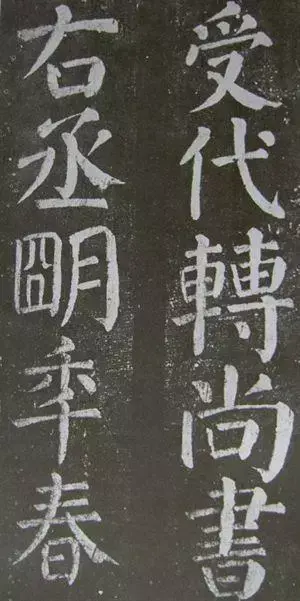 受代轉尚書
右丞朙年春